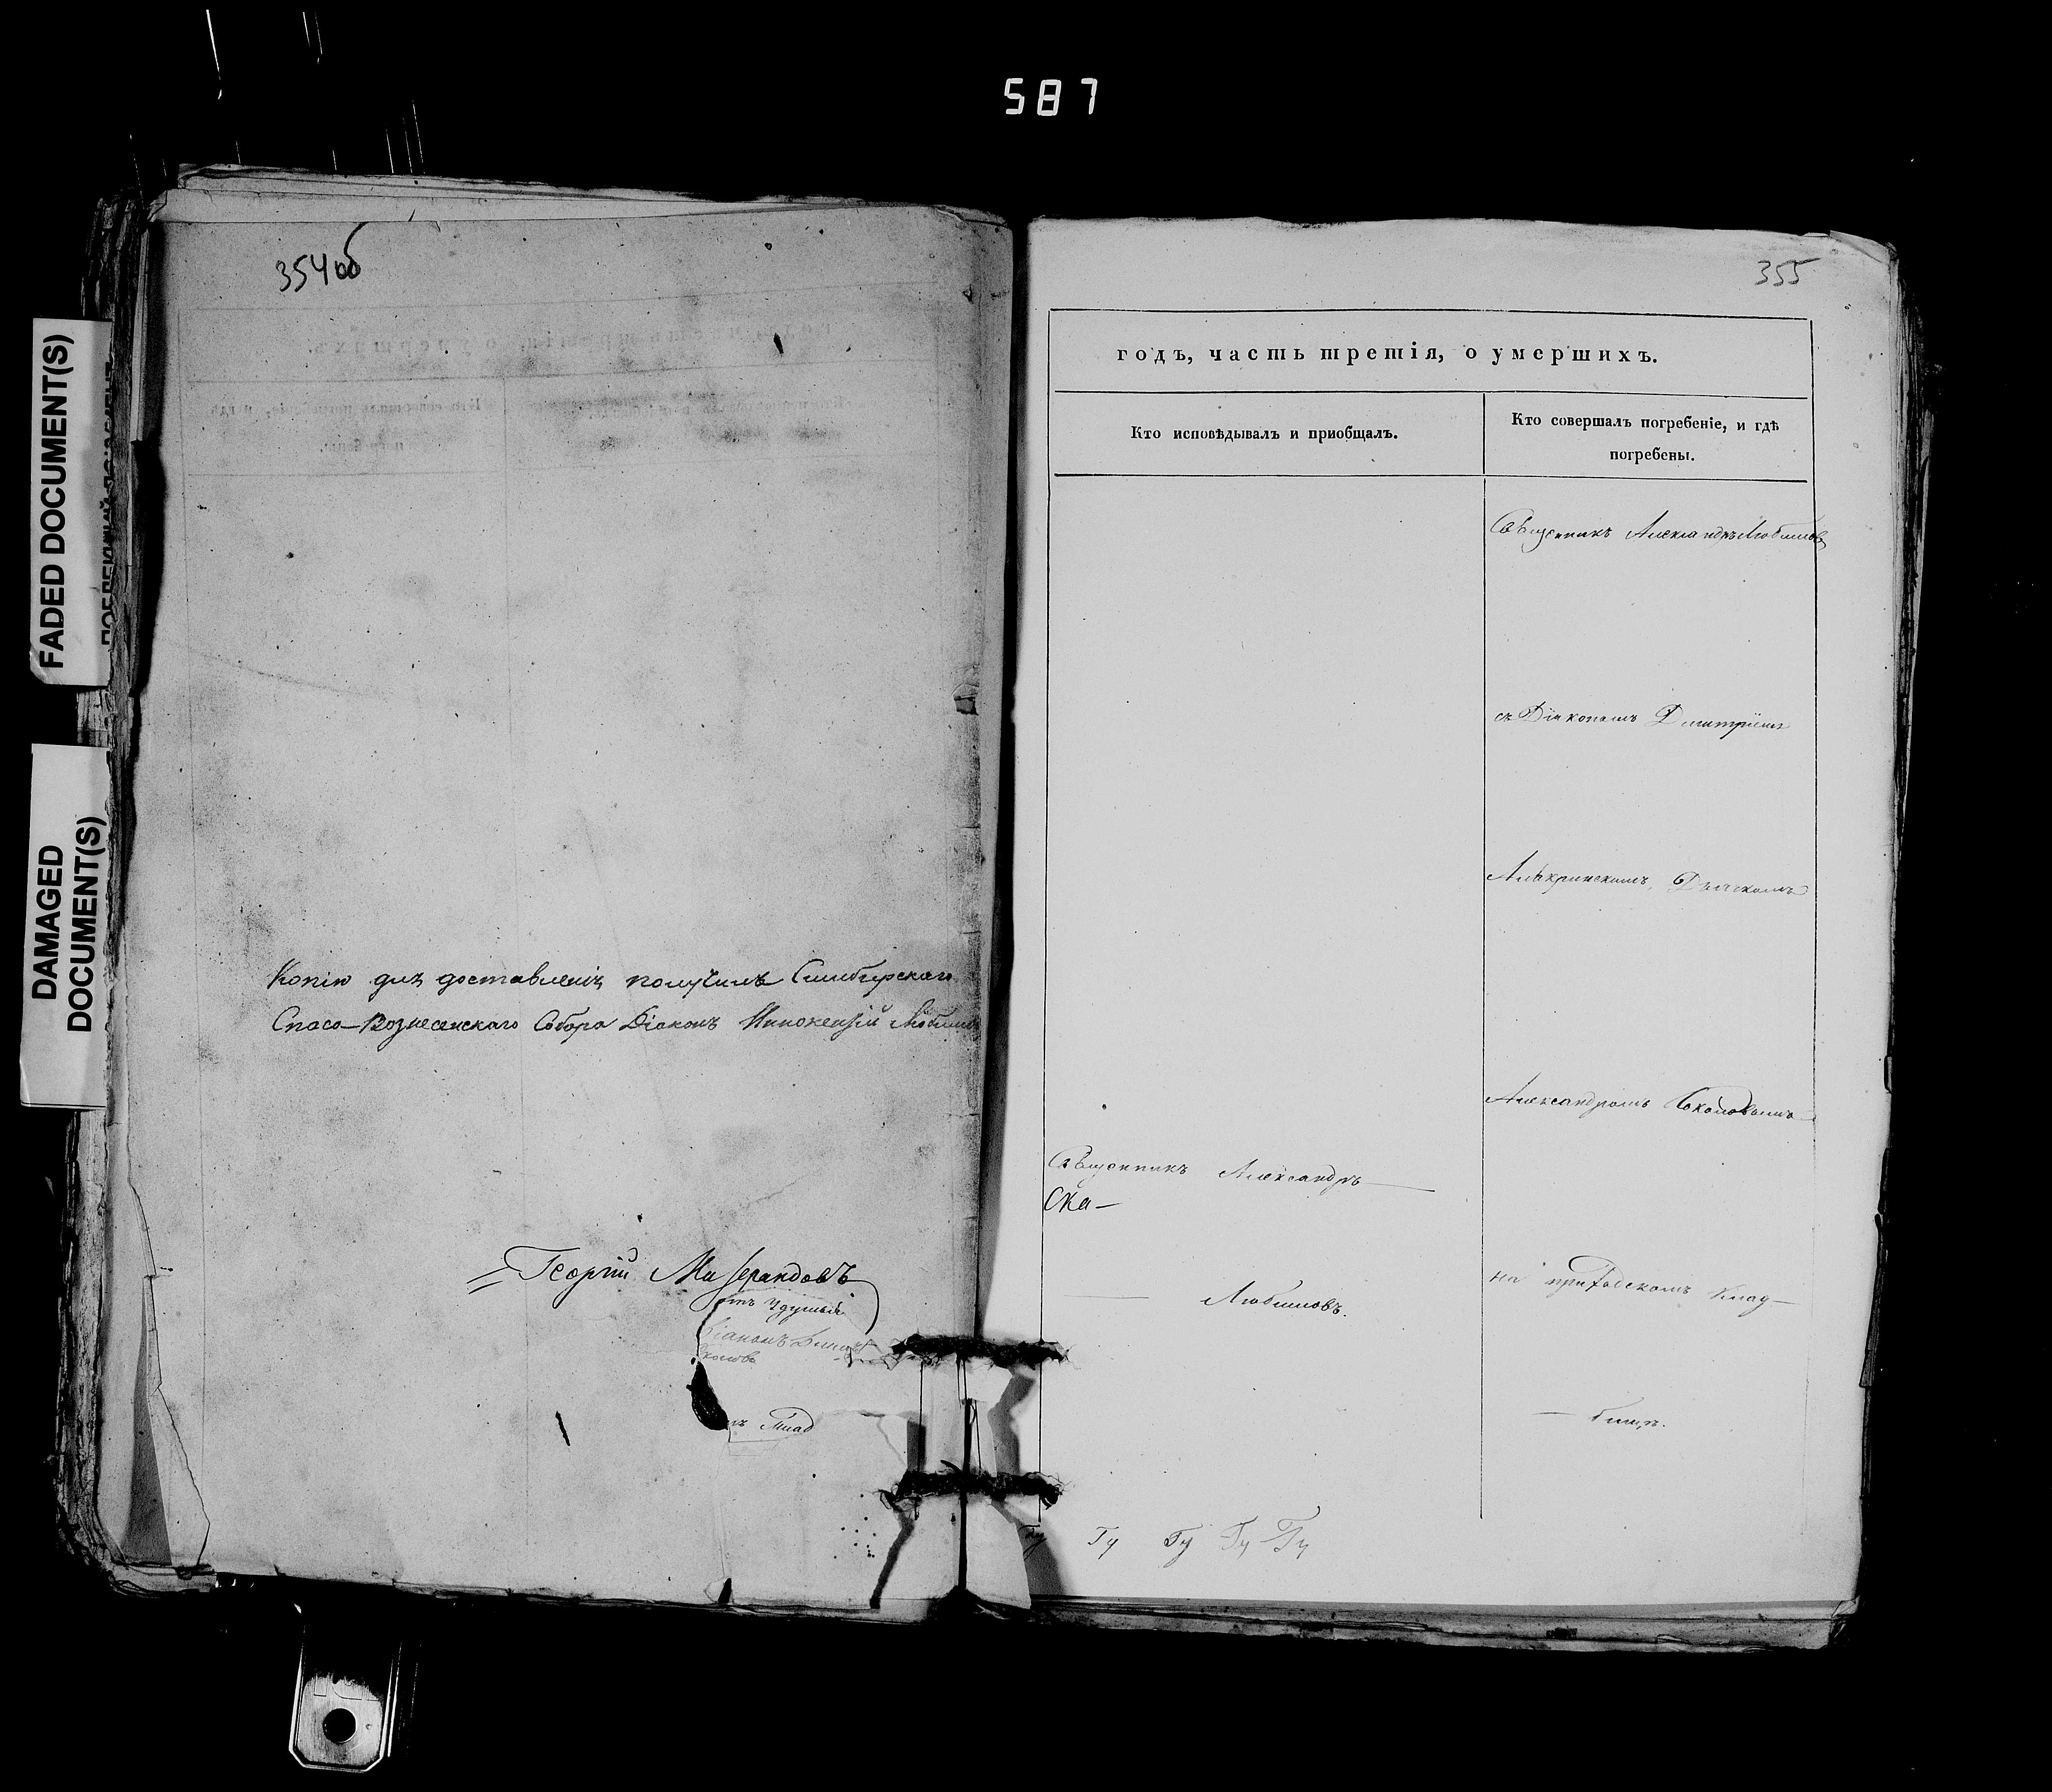 587
FADED DOCUMENT(S)
DAMAGED
DOCUMENT(S)
354об
Копію для доставленія получилъ Симбирскаго
Спасо-Вознесенскаго Собора Діаконъ Иннокентій Любимовъ
Георгій
355
годъ, часть третія, о умершихъ.
Кто исповѣдывалъ и пріобщалъ.
Кто совершалъ погребеніе, и гдѣ
погребены.
Священникъ Александръ Любимовъ
съ Діакономъ Димитріемъ
Дьячкомъ
Александромъ Соколовымъ
Священникъ Александръ
Ска-
Любимовъ.
на приходскомъ Клад-
бищѣ.
Гу Гу Гу Гу Гу